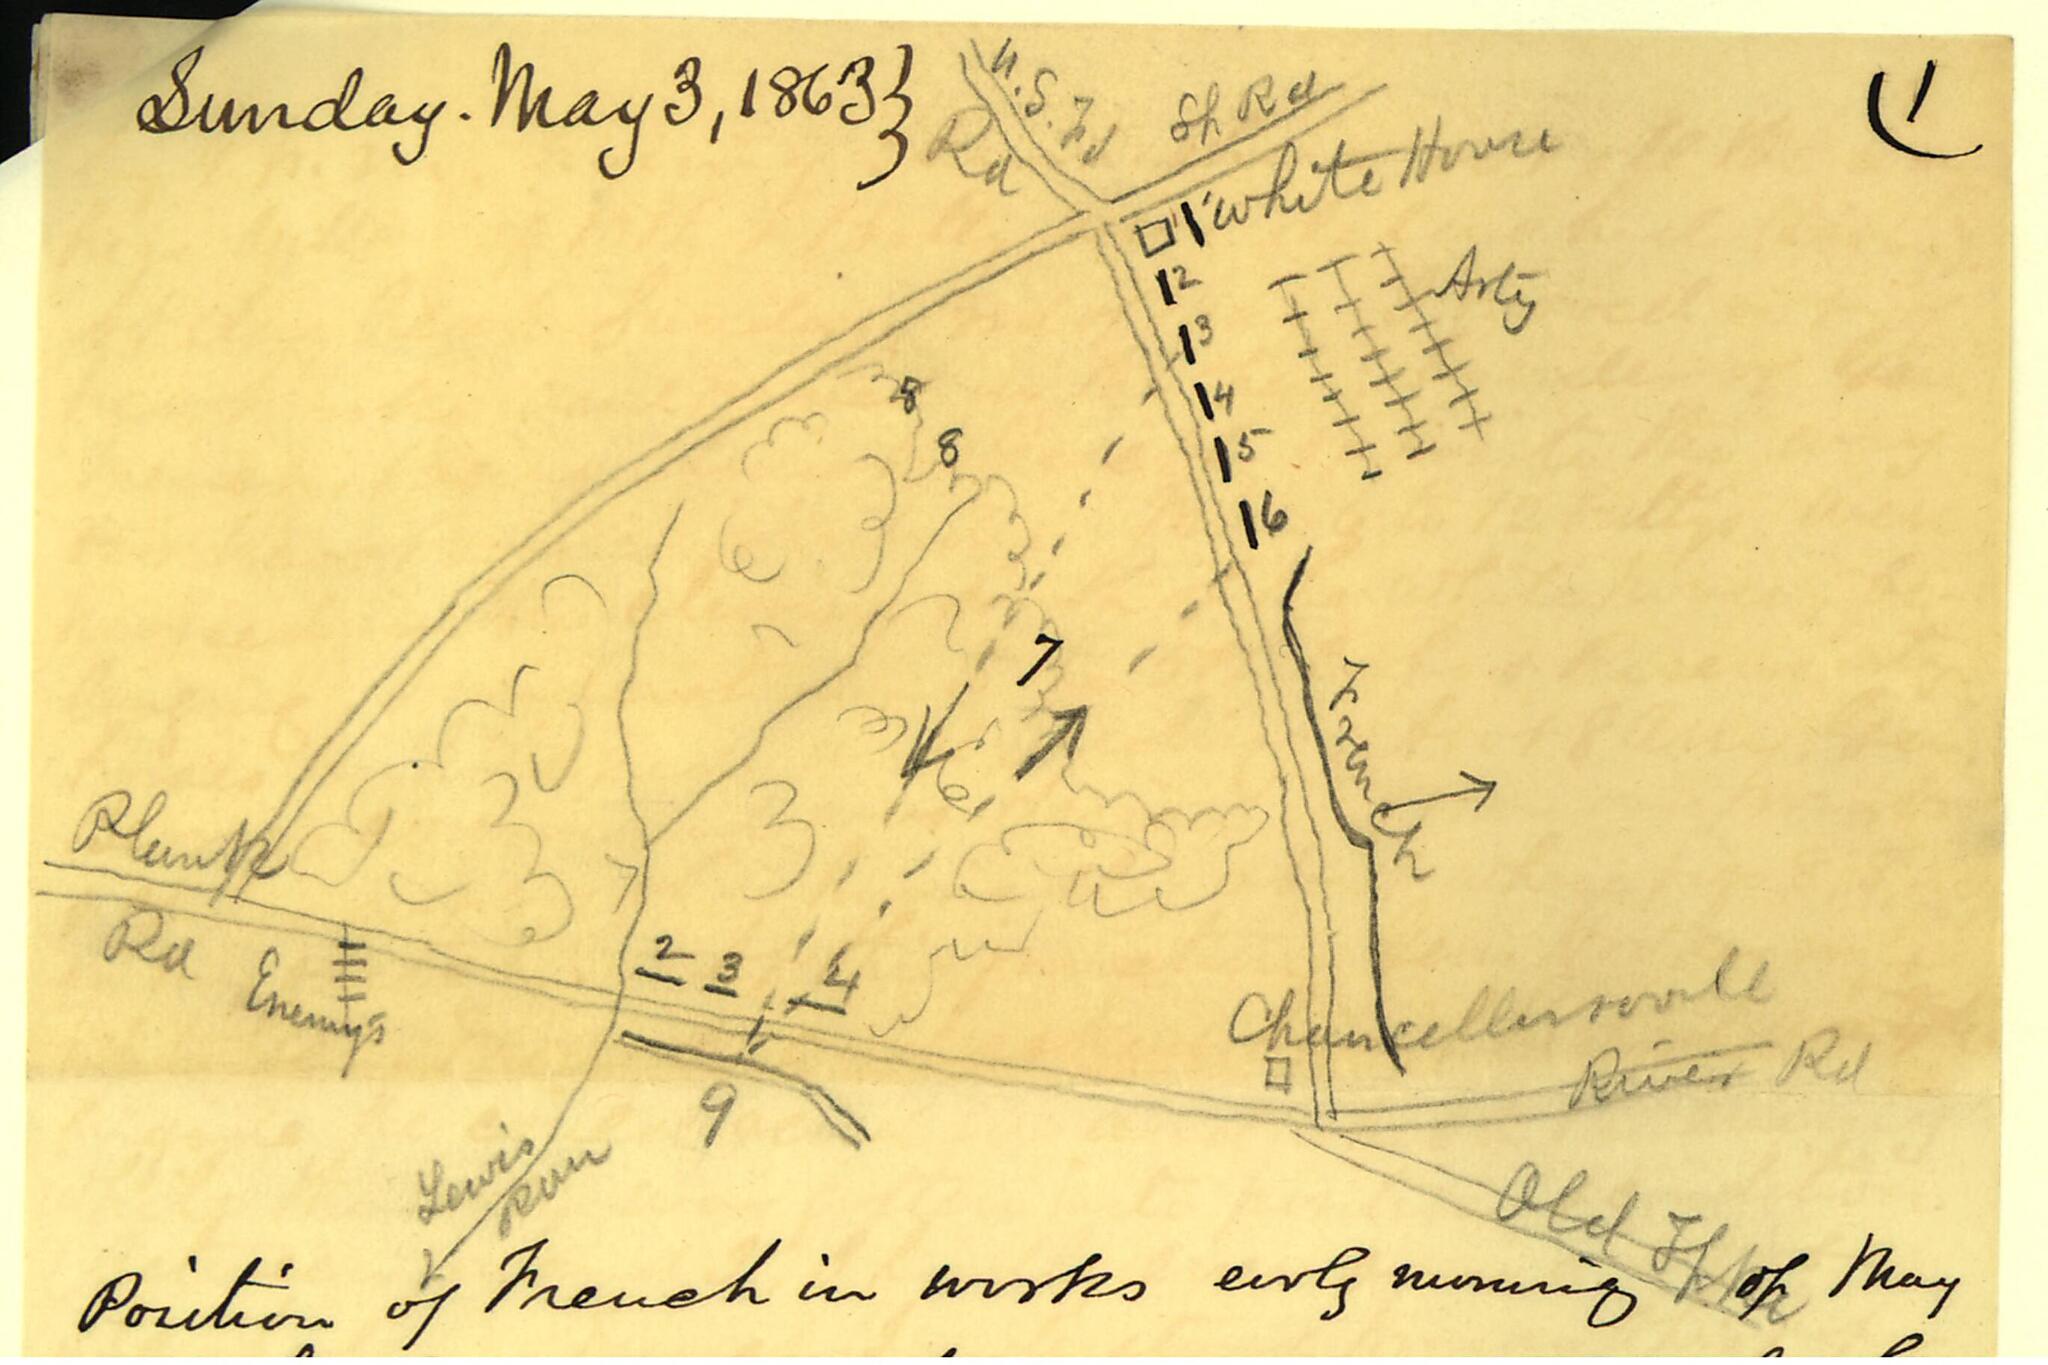 Sunday. May 3, 1863}
1
U.S. Fd
Rd
Sh Rd
White House
1
2
3
4
5
6
Arty
8
8
7
French
Plank
Rd
Enemy's
2
3
4
9
Chancellorsville
River Rd
Lewis
Run
Old Tpke
Position of French in works early morning of May